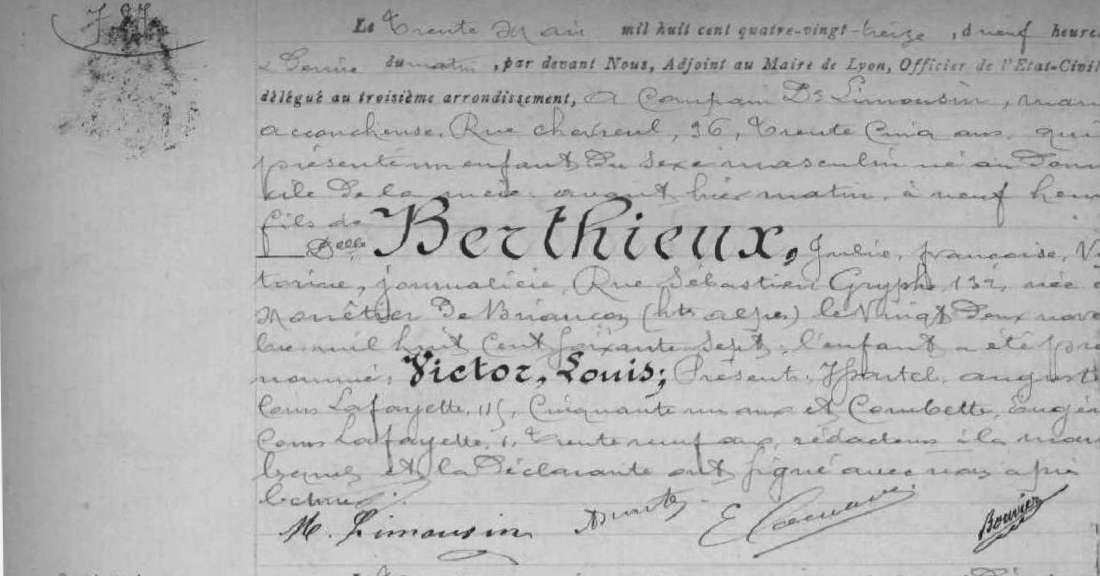 Le Trente Mai mil huit cent quatre-vingt-treize, à neuf heure
& Demie du matin, par devant Nous, Adjoint au Maire de Lyon, Officier de l'Etat-Civil
délégué au troisième arrondissement, a Comparu De Limousin,
accoucheuse, Rue chevreul, 36, Trente Cinq ans, qui
présenté un enfant du sexe masculin né au Domi
cile de la mère avant hier matin, à neuf heur
fils de
Delle Berthieux, Julie, françoise, Vi
torine, journalière, Rue Sébastien Gryphe 132, née
Monêtier de Briançon (htes alpes) le Vingt Deux nove
bre mil huit cent soixante sept, l'enfant a été pré
nommé, Victor, Louis; Présents: auguste
Cours Lafayette, 115, Cinquante un ans et Combette, Eugèn
Cours Lafayette, 1, Trente neuf ans, rédacteurs à la
lesquels et la Déclarante ont signé avec nous après
lecture.
M. Limousin Bouvier